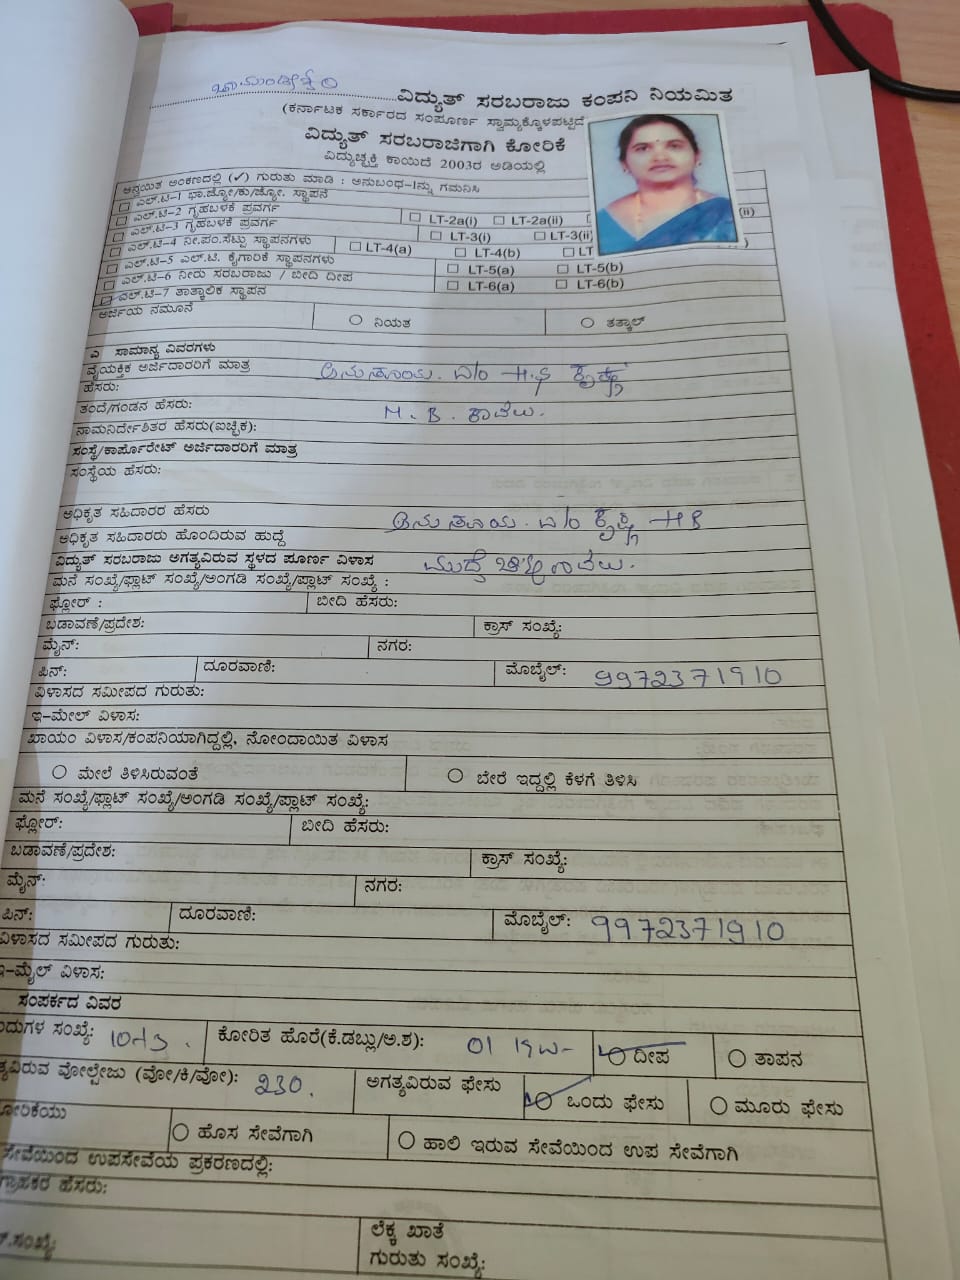 ಚಾಮುಂಡೇಶ್ವರಿ ವಿದ್ಯುತ್ ಸರಬರಾಜು ಕಂಪನಿ ನಿಯಮಿತ
(ಕರ್ನಾಟಕ ಸರ್ಕಾರದ ಸಂಪೂರ್ಣ ಸ್ವಾಮ್ಯಕ್ಕೊಳಪಟ್ಟಿದೆ
ವಿದ್ಯುತ್ ಸರಬರಾಜಿಗಾಗಿ ಕೋರಿಕೆ
ವಿದ್ಯುಚ್ಛಕ್ತಿ ಕಾಯಿದೆ 2003ರ ಅಡಿಯಲ್ಲಿ
ಅನ್ವಯಿತ ಅಂಕಣದಲ್ಲಿ (✓) ಗುರುತು ಮಾಡಿ : ಅನುಬಂಧ-1ನ್ನು ಗಮನಿಸಿ
☐ ಎಲ್.ಟಿ-1 ಭಾ.ಜ್ಯೋ/ಕು.ಜ್ಯೋ. ಸ್ಥಾಪನೆ
☐ ಎಲ್.ಟಿ-2 ಗೃಹಬಳಕೆ ಪ್ರವರ್ಗ ☐ LT-2a(i) ☐ LT-2a(ii) (ii)
☐ ಎಲ್.ಟಿ-3 ಗೃಹಬಳಕೆ ಪ್ರವರ್ಗ ☐ LT-3(i) ☐ LT-3(ii)
☐ ಎಲ್.ಟಿ-4 ನೀ.ಪಂ.ಸೆಟ್ಟು ಸ್ಥಾಪನಗಳು ☐ LT-4(a) ☐ LT-4(b) ☐ LT
☐ ಎಲ್.ಟಿ-5 ಎಲ್.ಟಿ. ಕೈಗಾರಿಕೆ ಸ್ಥಾಪನಗಳು ☐ LT-5(a) ☐ LT-5(b)
☐ ಎಲ್.ಟಿ-6 ನೀರು ಸರಬರಾಜು / ಬೀದಿ ದೀಪ ☐ LT-6(a) ☐ LT-6(b)
☐ ಎಲ್.ಟಿ-7 ತಾತ್ಕಾಲಿಕ ಸ್ಥಾಪನ
ಅರ್ಜಿಯ ನಮೂನೆ ○ ನಿಯತ ○ ತತ್ಕಾಲ್
ಎ ಸಾಮಾನ್ಯ ವಿವರಗಳು
ವೈಯಕ್ತಿಕ ಅರ್ಜಿದಾರರಿಗೆ ಮಾತ್ರ
ಹೆಸರು: ಅನುಸೂಯ. ಏ/o ಕೃಷ್ಣ
ತಂದೆ/ಗಂಡನ ಹೆಸರು: M. B. ಕಾವಲು.
ನಾಮನಿರ್ದೇಶಿತರ ಹೆಸರು(ಐಚ್ಛಿಕ):
ಸಂಸ್ಥೆ/ಕಾರ್ಪೊರೇಟ್ ಅರ್ಜಿದಾರರಿಗೆ ಮಾತ್ರ
ಸಂಸ್ಥೆಯ ಹೆಸರು:
ಅಧಿಕೃತ ಸಹಿದಾರರ ಹೆಸರು ಅನುಸೂಯ. ಏ/o ಕೃಷ್ಣ
ಅಧಿಕೃತ ಸಹಿದಾರರು ಹೊಂದಿರುವ ಹುದ್ದೆ
ವಿದ್ಯುತ್ ಸರಬರಾಜು ಅಗತ್ಯವಿರುವ ಸ್ಥಳದ ಪೂರ್ಣ ವಿಳಾಸ
ಮನೆ ಸಂಖ್ಯೆ/ಫ್ಲಾಟ್ ಸಂಖ್ಯೆ/ಅಂಗಡಿ ಸಂಖ್ಯೆ/ಪ್ಲಾಟ್ ಸಂಖ್ಯೆ :
ಫ್ಲೋರ್ : ಬೀದಿ ಹೆಸರು:
ಬಡಾವಣೆ/ಪ್ರದೇಶ: ಕ್ರಾಸ್ ಸಂಖ್ಯೆ:
ಮೈನ್: ನಗರ:
ಪಿನ್: ದೂರವಾಣಿ: ಮೊಬೈಲ್: 9972371910
ವಿಳಾಸದ ಸಮೀಪದ ಗುರುತು:
ಇ-ಮೇಲ್ ವಿಳಾಸ:
ಖಾಯಂ ವಿಳಾಸ/ಕಂಪನಿಯಾಗಿದ್ದಲ್ಲಿ, ನೋಂದಾಯಿತ ವಿಳಾಸ
○ ಮೇಲೆ ತಿಳಿಸಿರುವಂತೆ ○ ಬೇರೆ ಇದ್ದಲ್ಲಿ ಕೆಳಗೆ ತಿಳಿಸಿ
ಮನೆ ಸಂಖ್ಯೆ/ಫ್ಲಾಟ್ ಸಂಖ್ಯೆ/ಅಂಗಡಿ ಸಂಖ್ಯೆ/ಪ್ಲಾಟ್ ಸಂಖ್ಯೆ:
ಫ್ಲೋರ್: ಬೀದಿ ಹೆಸರು:
ಬಡಾವಣೆ/ಪ್ರದೇಶ: ಕ್ರಾಸ್ ಸಂಖ್ಯೆ:
ಮೈನ್: ನಗರ:
ಪಿನ್: ದೂರವಾಣಿ: ಮೊಬೈಲ್: 9972371910
ವಿಳಾಸದ ಸಮೀಪದ ಗುರುತು:
ಇ-ಮೈಲ್ ವಿಳಾಸ:
ಸಂಪರ್ಕದ ವಿವರ
ಂದುಗಳ ಸಂಖ್ಯೆ: ಕೋರಿತ ಹೊರೆ(ಕೆ.ಡಬ್ಲು/ಅ.ಶ): 01 ○ ದೀಪ ○ ತಾಪನ
ತ್ಯವಿರುವ ವೋಲ್ಟೇಜು (ವೋ/ಕಿ/ವೋ): 230. ಅಗತ್ಯವಿರುವ ಫೇಸು ○ ಒಂದು ಫೇಸು ○ ಮೂರು ಫೇಸು
ೋರಿಕೆಯು ○ ಹೊಸ ಸೇವೆಗಾಗಿ ○ ಹಾಲಿ ಇರುವ ಸೇವೆಯಿಂದ ಉಪ ಸೇವೆಗಾಗಿ
ಸೇವೆಯಿಂದ ಉಪಸೇವೆಯ ಪ್ರಕರಣದಲ್ಲಿ:
ಗ್ರಾಹಕರ ಹೆಸರು:
.ಸಂಖ್ಯೆ: ಲೆಕ್ಕ ಖಾತೆ
ಗುರುತು ಸಂಖ್ಯೆ: